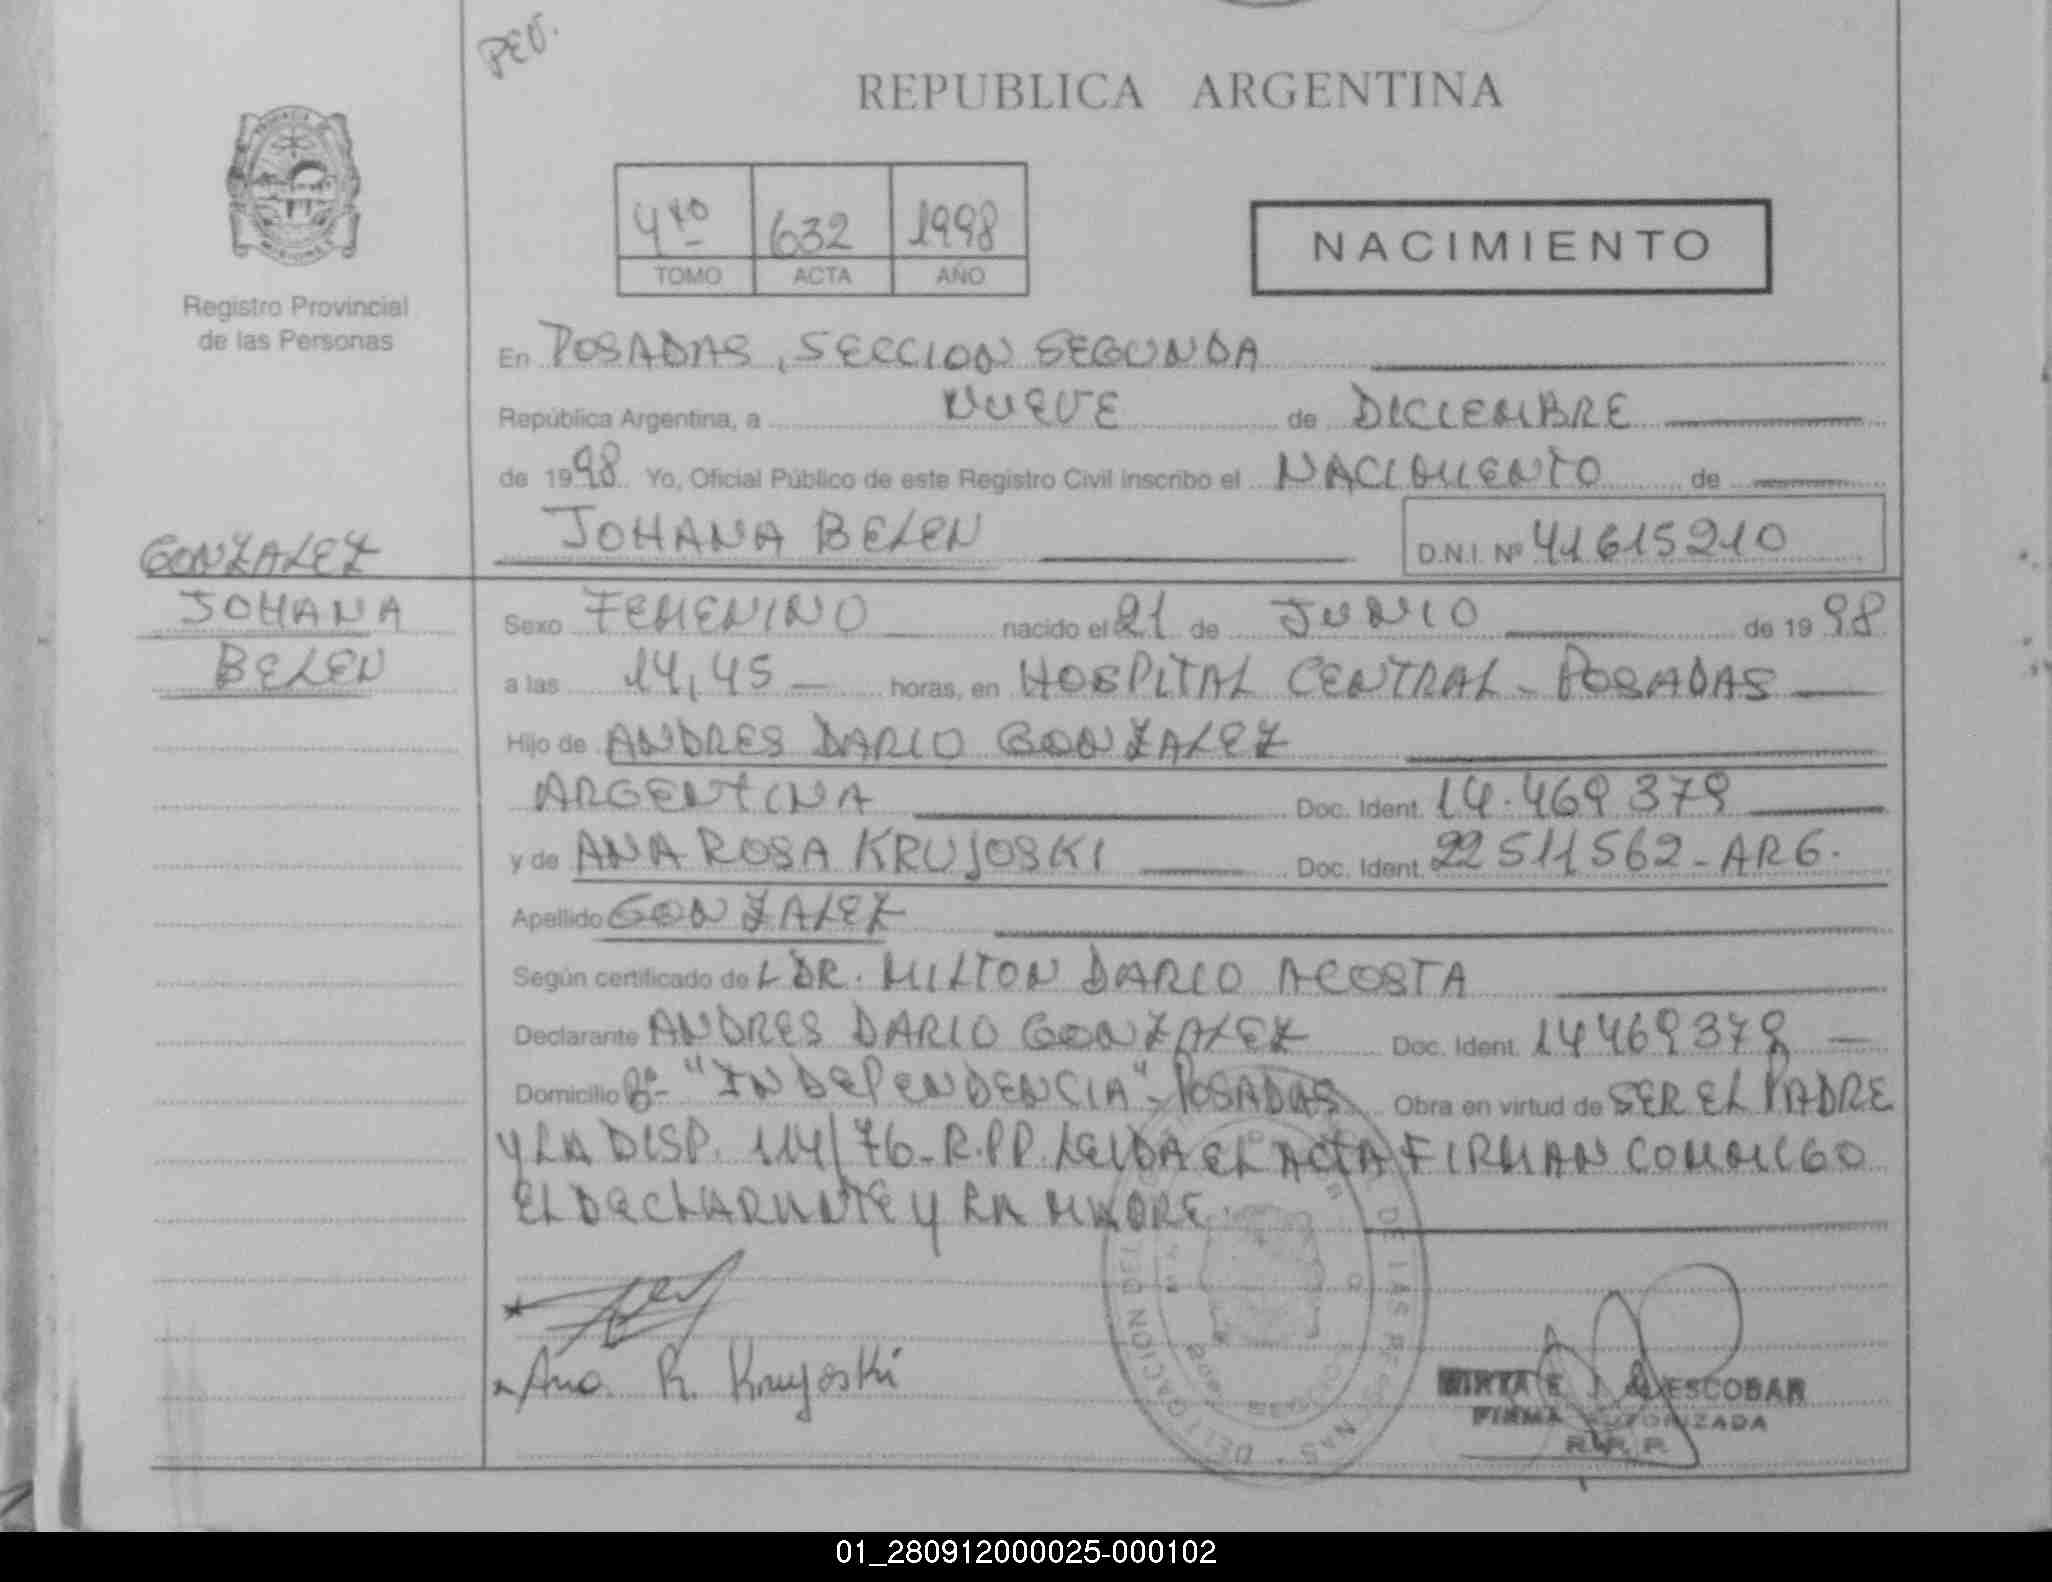 PED.
REPUBLICA ARGENTINA
4to 632 1998
TOMO ACTA AÑO
NACIMIENTO
Registro Provincial
de las Personas
En POSADAS, SECCION SEGUNDA
República Argentina, a NUEVE de DICIEMBRE
de 1998 Yo, Oficial Público de este Registro Civil inscribo el NACIMIENTO de
JOHANA BELEN D.N.I. Nº 41615210
GONZALEZ
JOHANA
BELEN
Sexo FEMENINO nacido el 21 de JUNIO de 1998
a las 14,45 horas, en HOSPITAL CENTRAL - POSADAS
Hijo de ANDRES DARIO GONZALEZ
ARGENTINA Doc. Ident. 14.469 379
y de ANA ROSA KRUJOSKI Doc. Ident. 22511562-ARG.
Apellido GONZALEZ
Según certificado de L DR. MILTON DARIO ACOSTA
Declarante ANDRES DARIO GONZALEZ Doc. Ident. 14469379
Domicilio Bº- "INDEPENDENCIA"-POSADAS Obra en virtud de SER EL PADRE
Y LA DISP. 114/76-R.PP. LEIDA EL ACTA FIRMAN CONMIGO
EL DECLARANTE Y LA MADRE.
Ana R. Krujoski
MIRTA E. ESCOBAR
FIRMA AUTORIZADA
R.P.P.
DELEGACION DE LAS PERSONAS
POSADAS
01_280912000025-000102